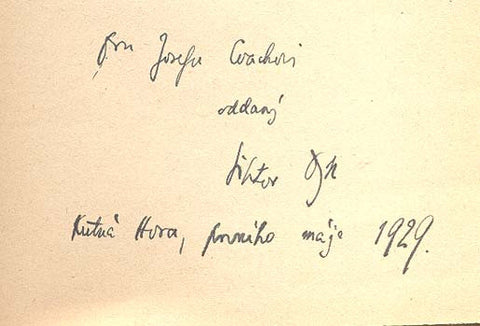 pnu Josefu Cvachovi
oddaný
Viktor Dyk
Kutná Hora, prvního máje 1929.